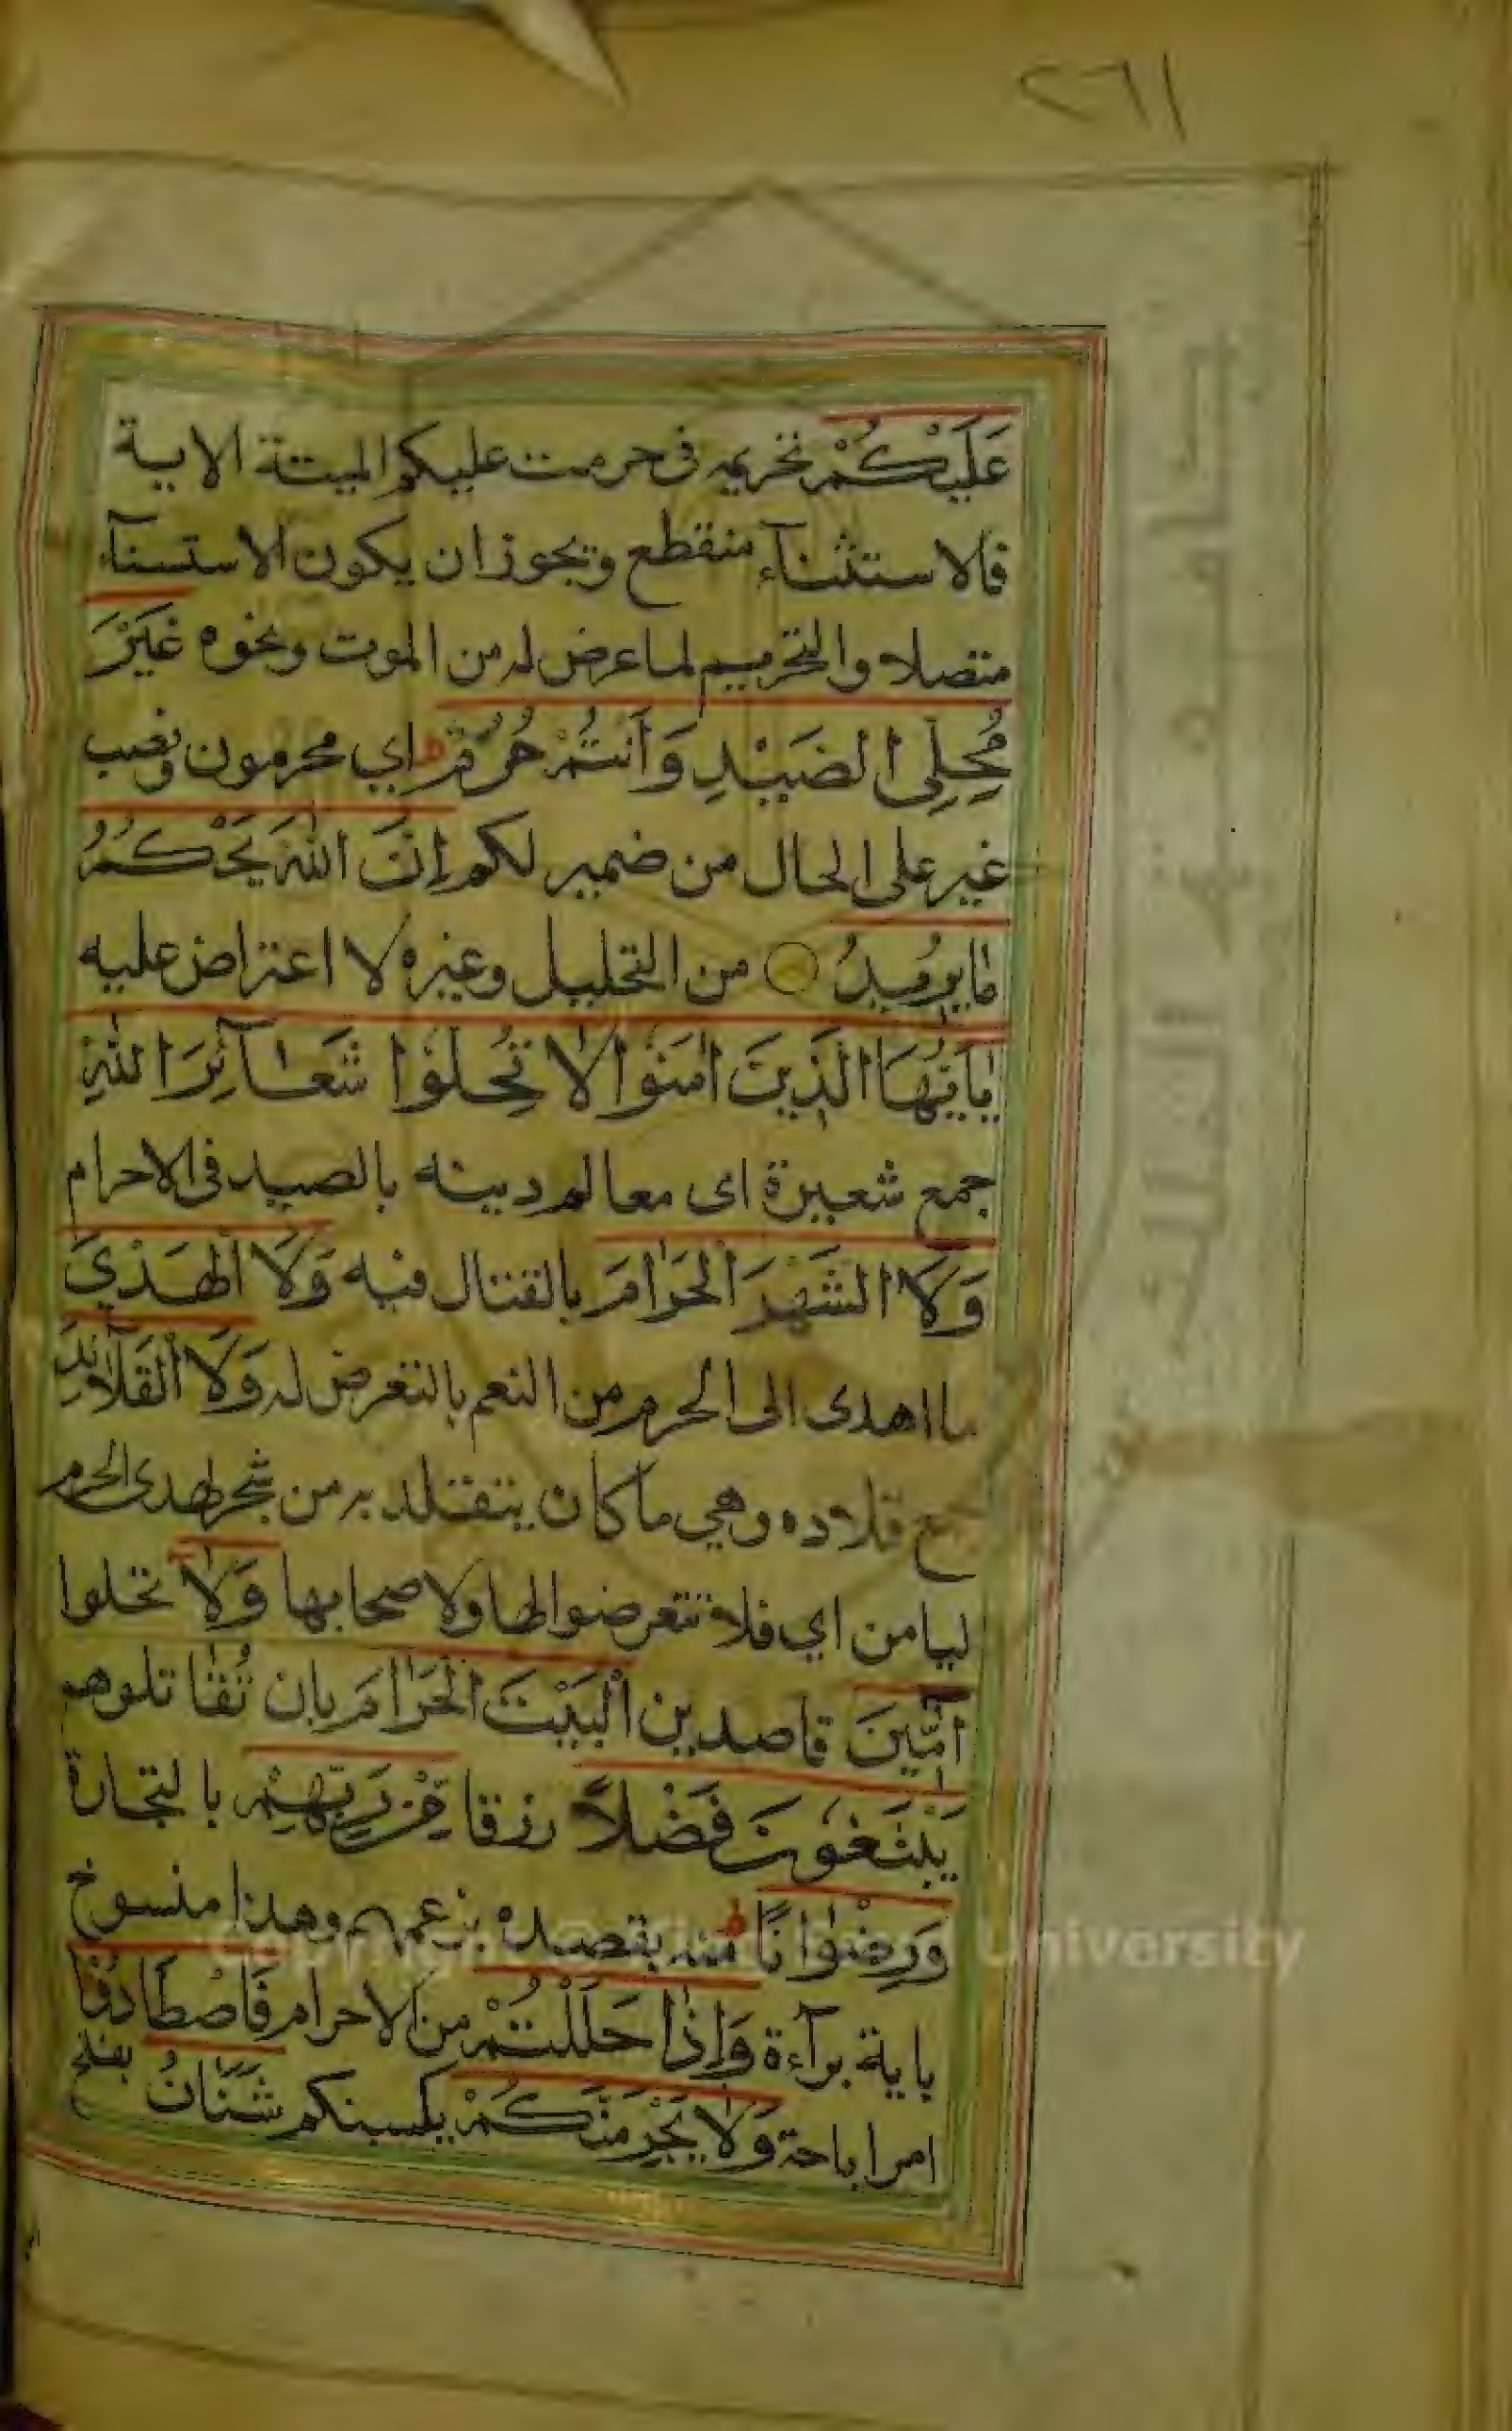 ٢٦١
عَلَيْكُمْ تحريمه فى حرمت عليكم الميتة الاية
فالاستثنآء منقطع ويجوز ان يكون الاستسنآء
متصلا والتحريم لما عرض له من الموت ونحوه غَيْرَ
مُحِلِّى الصَّيْدِ وَاَنْتُمْ حُرُمٌ اي محرمون ونصب
غير على الحال من ضمير لكم اِنَّ اللهَ يَحْكُمُ
مَا يُرِيدُ من التحليل وغيره لا اعتراض عليه
يٰاَيُّهَا الَّذِينَ اٰمَنُوا لَا تُحِلُّوا شَعَآئِرَ اللهِ
جمع شعيرة اى معالم دينه بالصيد فى الاحرام
وَلَا الشَّهْرَ الْحَرَامَ بالقتال فيه وَلَا الْهَدْيَ
ما اهدى الى الحرم من النعم بالتعرض له وَلَا الْقَلَآئِدَ
جمع قلاده وهي ما كان يتقلد به من شجر الحرم
ليامن اي فلا تتعرضوا لها ولا صحابها وَلَا تحلوا
اٰمِّينَ قاصدين الْبَيْتَ الْحَرَامَ بان تُقَاتلوهم
يَبْتَغُونَ فَضْلاً رزقا مِنْ رَبِّهِمْ بالتجارة
وَرِضْوَانًا منه بقصده بزعمهم وهذا منسوخ
باية برآءة وَاِذَا حَلَلْتُمْ من الاحرام فَاصْطَادُوا
امر اباحة وَلَا يَجْرِمَنَّكُمْ يكسبنكم شَنَاٰنُ بفتح
جامعة الملك
University